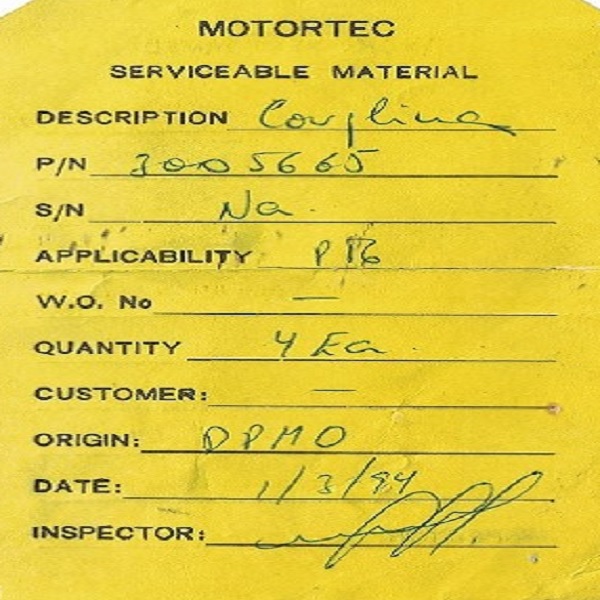 MOTORTEC
SERVICEABLE MATERIAL
DESCRIPTION Coupling
P/N 3005665
S/N Na.
APPLICABILITY PT6
W.O. No —
QUANTITY 4 Ea.
CUSTOMER: —
ORIGIN: DPMO
DATE: 1/3/94
INSPECTOR: